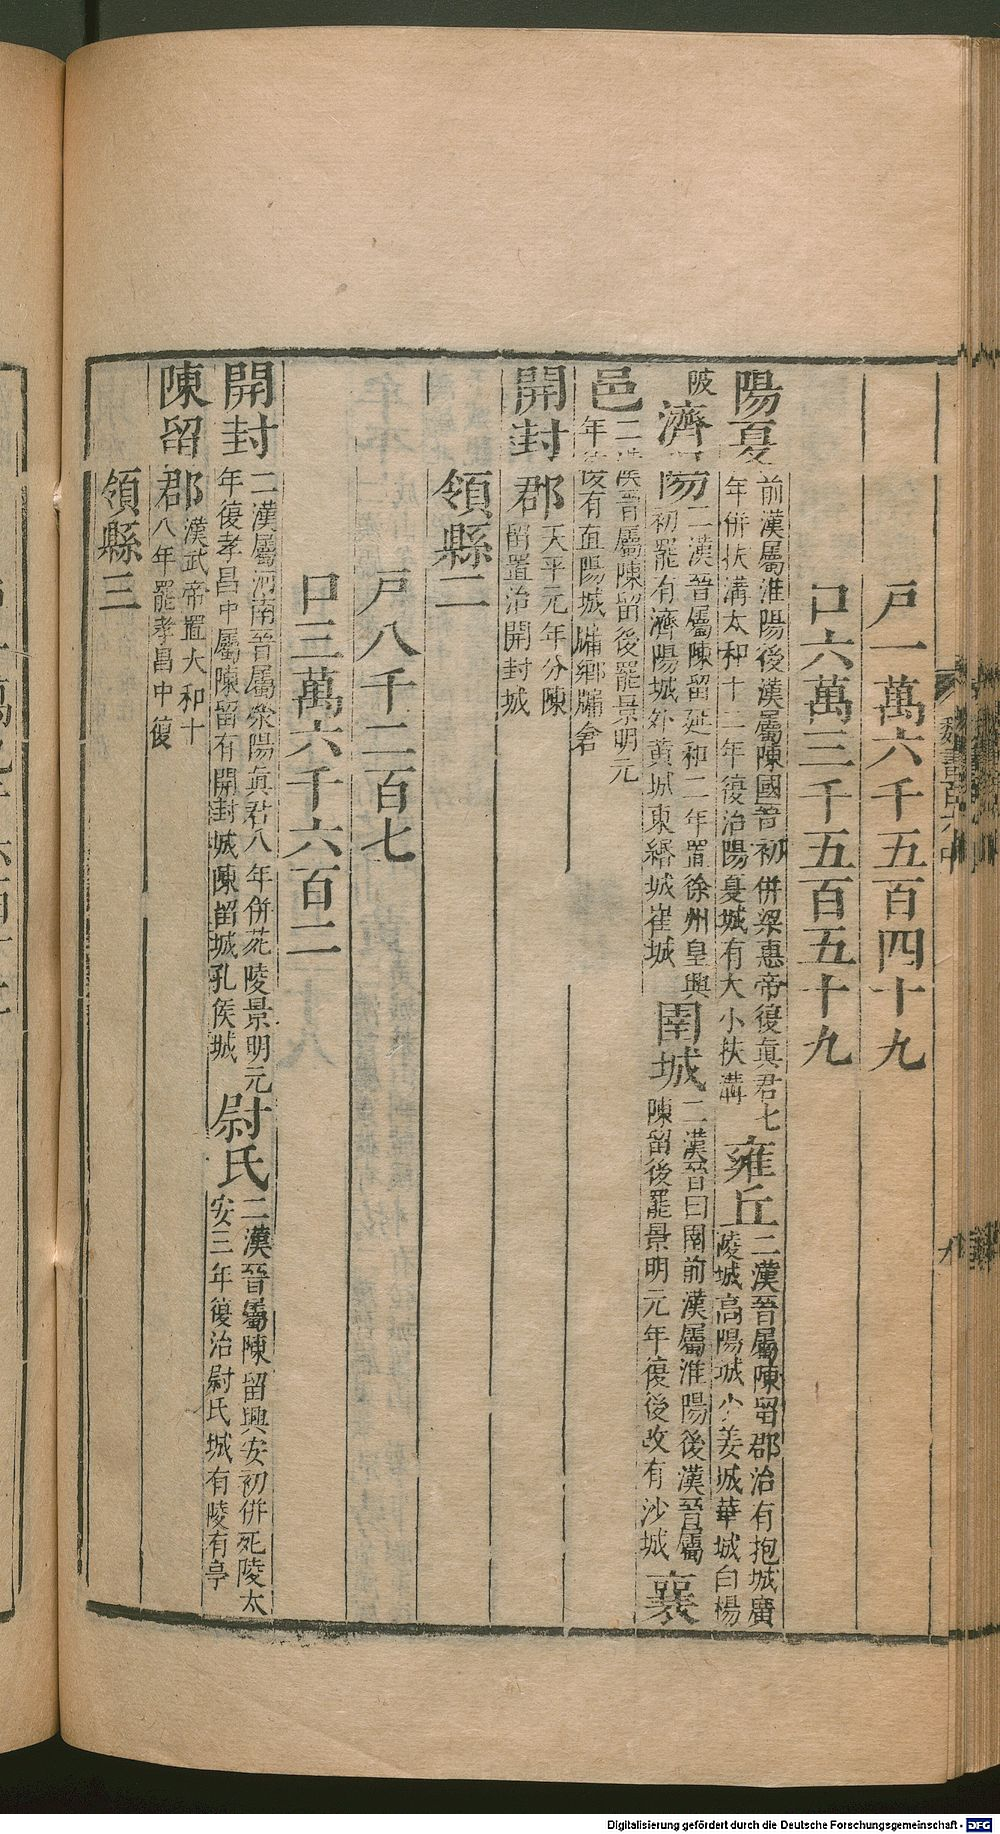 戸一萬六千五百四十九
口六萬三千五百五十九
陽夏前漢屬淮陽後漢屬陳國晉初併梁惠帝復眞君七年併扶溝太和十二年復治陽夏城有大小扶溝雍丘二漢晉屬陳留郡治有抱城廣陵城高陽城少姜城華城白楊
陂濟陽二漢晉屬陳留延和二年置徐州皇興初罷有濟陽城外黄城東緡城崔城圉城二漢晉曰圉前漢屬淮陽後漢晉屬陳留後罷景明元年復後改有沙城襄
邑二漢晉屬陳留後罷景明元年復有直陽城
開封郡天平元年分陳留置治開封城
領縣二
戸八千二百七
口三萬六千六百二
開封二漢屬河南晉屬滎陽眞君八年併苑陵景明元年復孝昌中屬陳留有開封城陳留城孔侯城尉氏二漢晉屬陳留興安初併苑陵太安三年復治尉氏城有陵有亭
陳留郡漢武帝置太和十八年罷孝昌中復
領縣三
魏書百六中
Digitalisierung gefördert durch die Deutsche Forschungsgemeinschaft - DFG